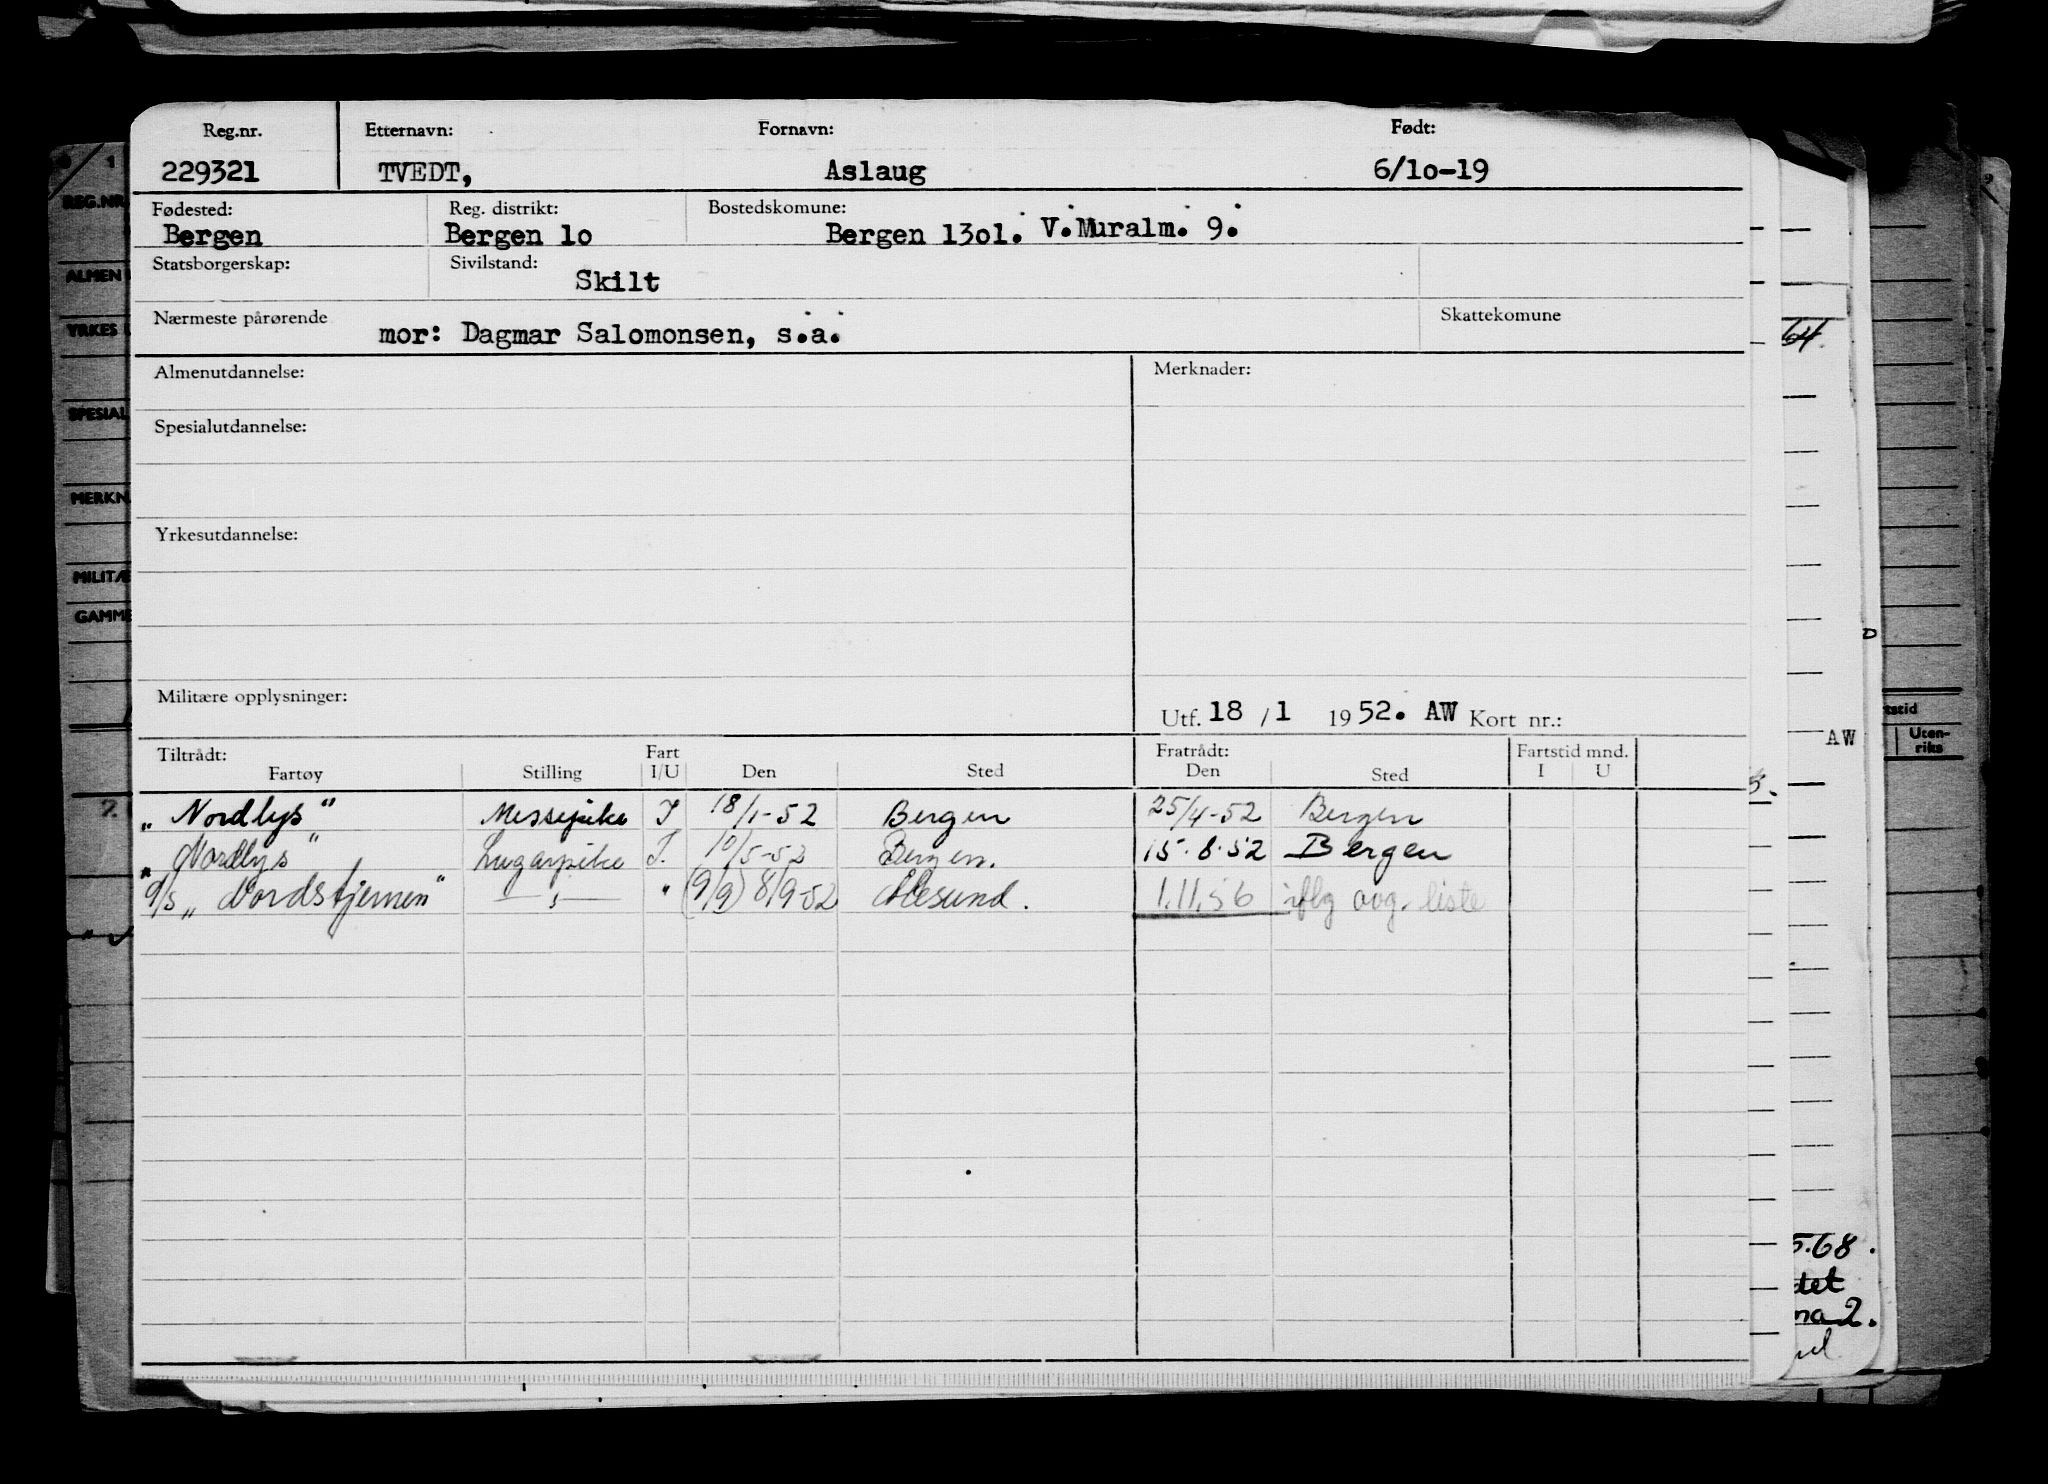 Reg.nr. Etternavn: Fornavn: Født:
229321 TVEDT, Aslaug 6/1o-19
Fødested: Reg. distrikt: Bostedskomune:
Bergen Bergen 1o Bergen 13o1. V.Muralm. 9.
Statsborgerskap: Sivilstand:
Skilt
Nærmeste pårørende Skattekomune
mor: Dagmar Salomonsen, s.a.
Almenutdannelse: Merknader:
Spesialutdannelse:
Yrkesutdannelse:
Militære opplysninger:
Utf. 18 / 1 19 52. AW Kort nr.:
Tiltrådt: Fart Fratrådt: Fartstid mnd.
Fartøy Stilling I/U Den Sted Den Sted I U
„Nordlys" Messepike I 18/1-52 Bergen 25/4-52 Bergen
„Nordlys" Lugarpike I. 10/5-52 Bergen. 15.8.52 Bergen
d/s „Nordstjernen" —"— " (9/9) 8/9-52 Ålesund. 1.11.56 iflg avg. liste
REG.NR
ALMEN
YRKES
SPESIAL
MERKN
MILITÆ
GAMME
64.
AW
Uten-
riks
5.68.
det
ma 2.